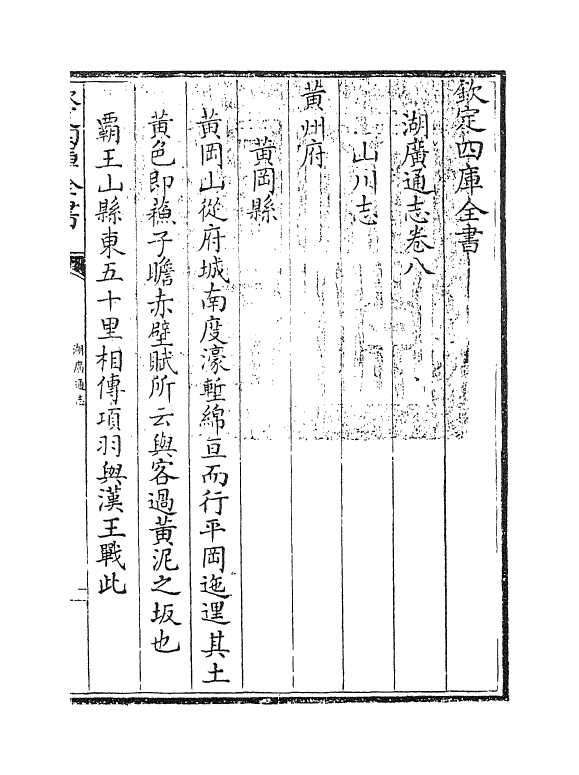 欽定四庫全書
湖廣通志卷八
山川志
黃州府
黃岡縣
黃岡山從府城南度濠塹綿亘而行平岡迤邐其土
黃色即蘓子瞻赤壁賦所云與客過黃泥之坂也
覇王山縣東五十里相傳項羽與漢王戰此
湖廣通志
一